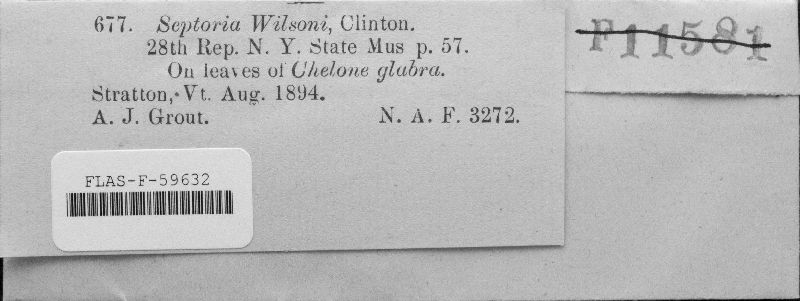 677. Septoria Wilsoni, Clinton.
28th Rep. N. Y. State Mus p. 57.
On leaves of Chelone glabra.
Stratton, Vt. Aug. 1894.
A. J. Grout. N. A. F. 3272.
F11581
FLAS-F-59632